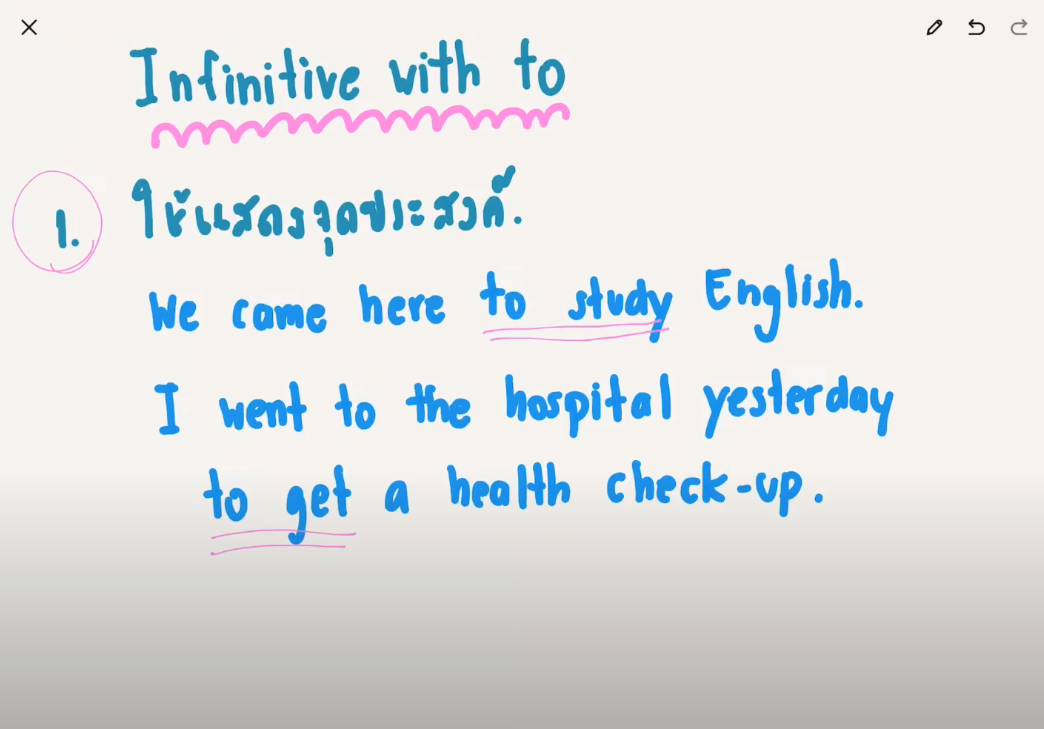 Infinitive with to
1. ใช้แสดงจุดประสงค์.
We came here to study English.
I went to the hospital yesterday
to get a health check-up.